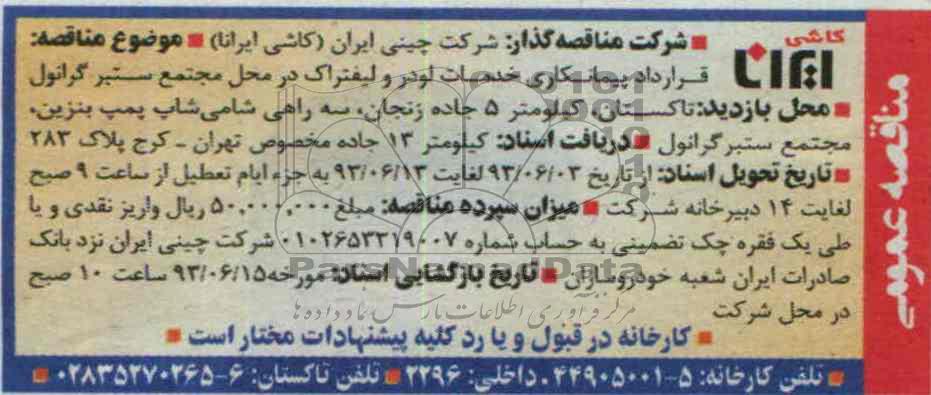 مناقصه عمومی
کاشی
ایرانا
■ شرکت مناقصه‌گذار: شرکت چینی ایران (کاشی ایرانا) ■ موضوع مناقصه:
قرارداد پیمانکاری خدمات لودر و لیفتراک در محل مجتمع ستبر گرانول
■ محل بازدید: تاکستان، کیلومتر ۵ جاده زنجان، سه راهی شامی‌شاپ پمپ بنزین،
مجتمع ستبر گرانول ■ دریافت اسناد: کیلومتر ۱۳ جاده مخصوص تهران ـ کرج پلاک ۲۸۳
■ تاریخ تحویل اسناد: از تاریخ ۹۳/۰۶/۰۳ لغایت ۹۳/۰۶/۱۳ به جزء ایام تعطیل از ساعت ۹ صبح
لغایت ۱۴ دبیرخانه شرکت ■ میزان سپرده مناقصه: مبلغ ۵۰,۰۰۰,۰۰۰ ریال واریز نقدی و یا
طی یک فقره چک تضمینی به حساب شماره ۰۱۰۲۶۵۳۳۱۹۰۰۷ شرکت چینی ایران نزد بانک
صادرات ایران شعبه خودروسازان ■ تاریخ بازگشایی اسناد: مورخه ۹۳/۰۶/۱۵ ساعت ۱۰ صبح
در محل شرکت
■ کارخانه در قبول و یا رد کلیه پیشنهادات مختار است ■
■ تلفن کارخانه: ۵-۴۴۹۰۵۰۰۱، داخلی: ۲۲۹۶ ■ تلفن تاکستان: ۶-۰۲۸۳۵۲۷۰۲۶۵ ■
ParsNamadData
مرکز فرآوری اطلاعات پارس نماد داده ها